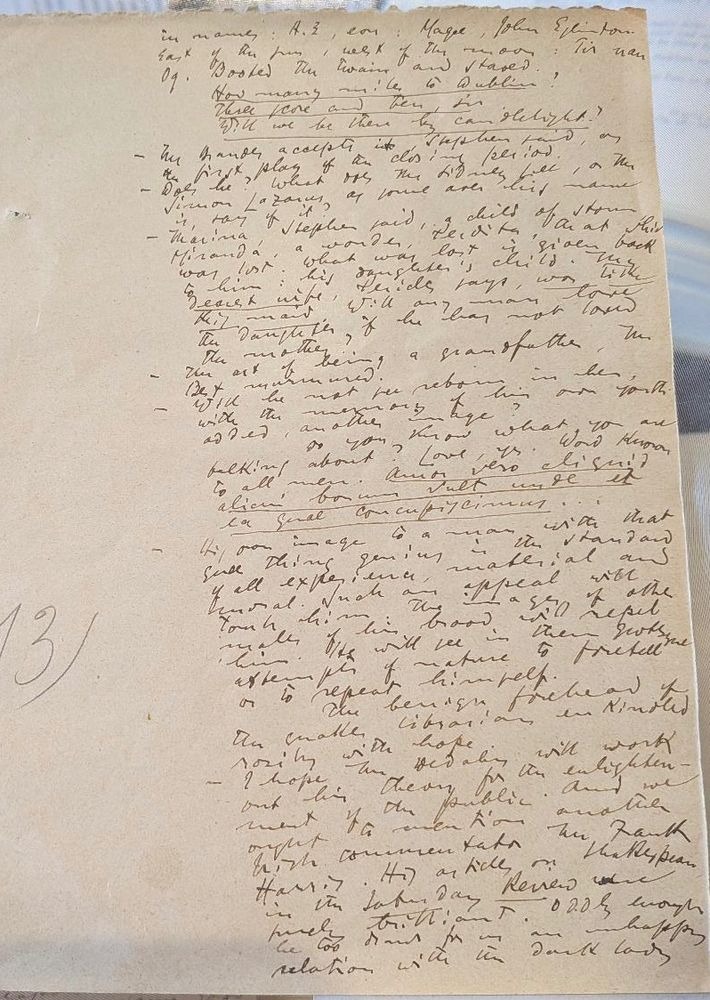 in names: A.E, eon: Magee, John Eglinton
East of the sun, west of the moon: Tir nan
Og. Booted the twain and staved.
How many miles to Dublin?
Three score and ten, sir
Will we be there by candlelight?
- Mr Brandes accepts it, Stephen said, as
the first play of the closing period.
- Does he? What does Mr Sidney Lee, or Mr
Simon Lazarus, as some aver his name
is, say of it?
- Marina, Stephen said, a child of storm
Miranda, a wonder, Perdita, that which
was lost. What was lost is given back
to him: his daughter's child. My
dearest wife, Pericles says, was like
this maid. Will any man love
the daughter if he has not loved
the mother?
- The art of being a grandfather, Mr
Best murmured.
- Will he not see reborn in her,
with the memory of his own youth
added, another image?
Do you know what you are
talking about? Love, yes. Word known
to all men. Amor vero aliquid
alicui bonum vult unde et
ea quae concupiscimus...
- His own image to a man with that
queer thing genius is the standard
of all experience, material and
moral. Such an appeal will
touch him. The images of other
males of his brood will repel
him. He will see in them grotesque
attempts of nature to foretell
or to repeat himself.
The benign forehead of
the quaker librarian enkindled
rosily with hope.
- I hope Mr Dedalus will work
out his theory for the enlighten-
ment of the public. And we
ought to mention another
Irish commentator Mr Frank
Harris. His articles on Shakespeare
in the Saturday Review were
surely brilliant. Oddly enough
he too draws for us an unhappy
relation with the dark lady
13)